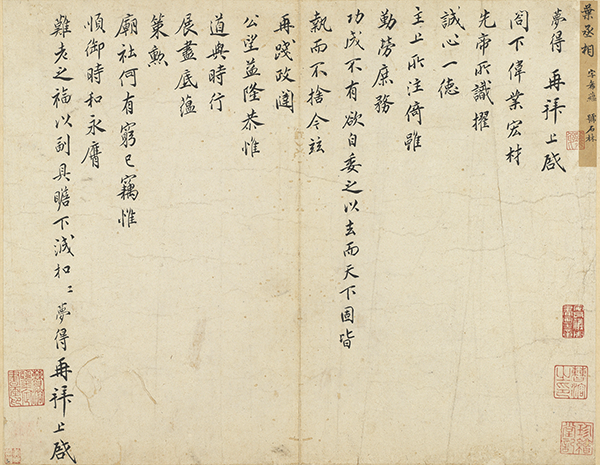 葉丞相 字少蘊 號石林
夢得 再拜上啟
閤下偉業宏材
先帝所識擢
誠心一德
主上所注倚雖
勤勞庶務
功成不有欲自委之以去而天下固皆
執而不捨今茲
再踐政途
公望益隆恭惟
道與時行
展盡底蘊
策勲
廟社何有窮已竊惟
順御時和永膺
難老之福以副具瞻下誠扣〻夢得再拜上啟